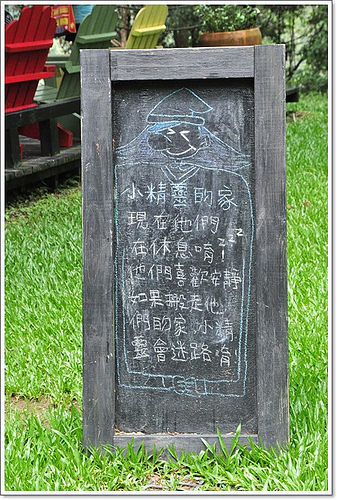 小精靈的家
現在他們
在休息唷! zzz
他們喜歡安靜
如果搬走他
們的家,小精
靈會迷路唷!